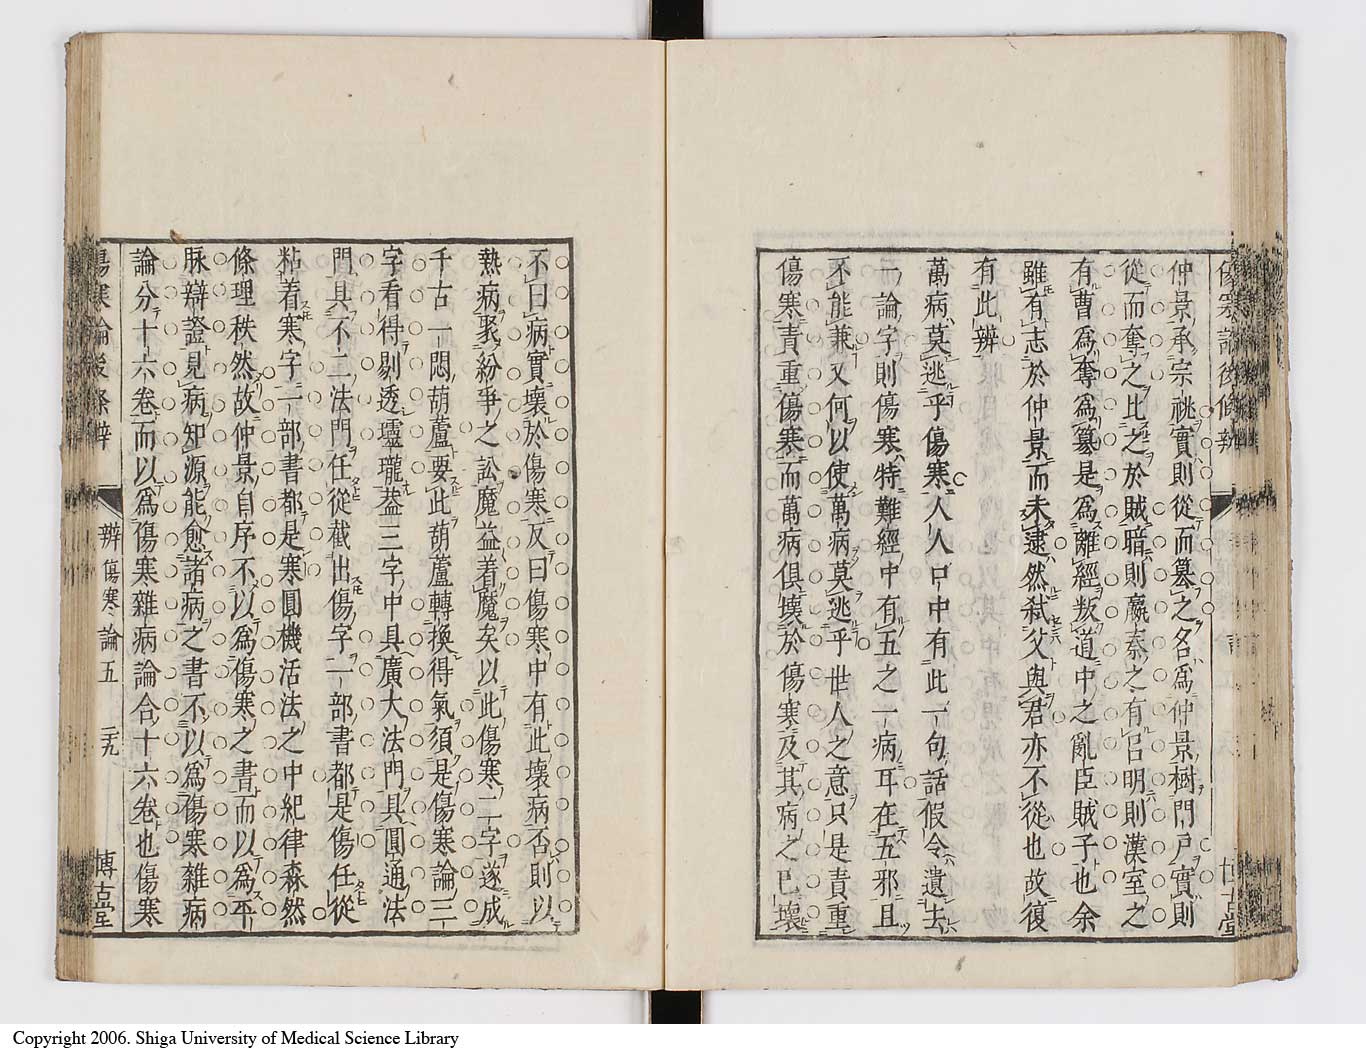 傷寒論後條辨
仲景承宗祧實則從而篡之名爲仲景樹門戸實則
從而奪之比之於賊暗則嬴秦之有呂明則漢室之
有曹爲奪爲篡是爲離經叛道中之亂臣賊子也余
雖有志於仲景而未逮然弑父與君亦不從也故復
有此辨
萬病莫逃乎傷寒人人口中有此一句話假令遺去
一論字則傷寒特難經中有五之一病耳在五邪且
不能兼又何以使萬病莫逃乎世人之意只是責重
傷寒責重傷寒而萬病俱壞於傷寒及其病之已壞
不曰病實壞於傷寒反曰傷寒中有此壞病否則以
熱病聚紛爭之訟魔益着魔矣以此傷寒二字遂成
千古一悶葫蘆要此葫蘆轉換得氣須是傷寒論三
字看得剔透瓏蓋三字中具廣大法門具圓通法
門具不二法門任從截出傷字一部書都是傷任從
粘着寒字一部書都是寒圓機活法之中紀律森然
條理秩然故仲景自序不以爲傷寒之書而以爲平
脉辯證見病知源能愈諸病之書不以爲傷寒雜病
論分十六卷而以爲傷寒雜病論合十六卷也傷寒
傷寒論後條辨
辨傷寒論五
三九
博古堂
Copyright 2006. Shiga University of Medical Science Library